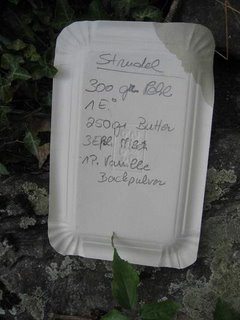 Strudel
300 gr Mehl
1 Ei
250 gr Butter
3 Eßl.
1 P. Vanille
Backpulver